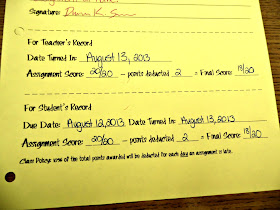 Signature:
For Teacher's Record
Date Turned In: August 13, 2013
Assignment Score: 20/20 - points deducted 2 = Final Score: 18/20
For Student's Record
Due Date: August 12, 2013 Date Turned In: August 13, 2013
Assignment Score: 20/20 - points deducted 2 = Final Score: 18/20
Class Policy: 10% of the total points awarded will be deducted for each day an assignment is late.